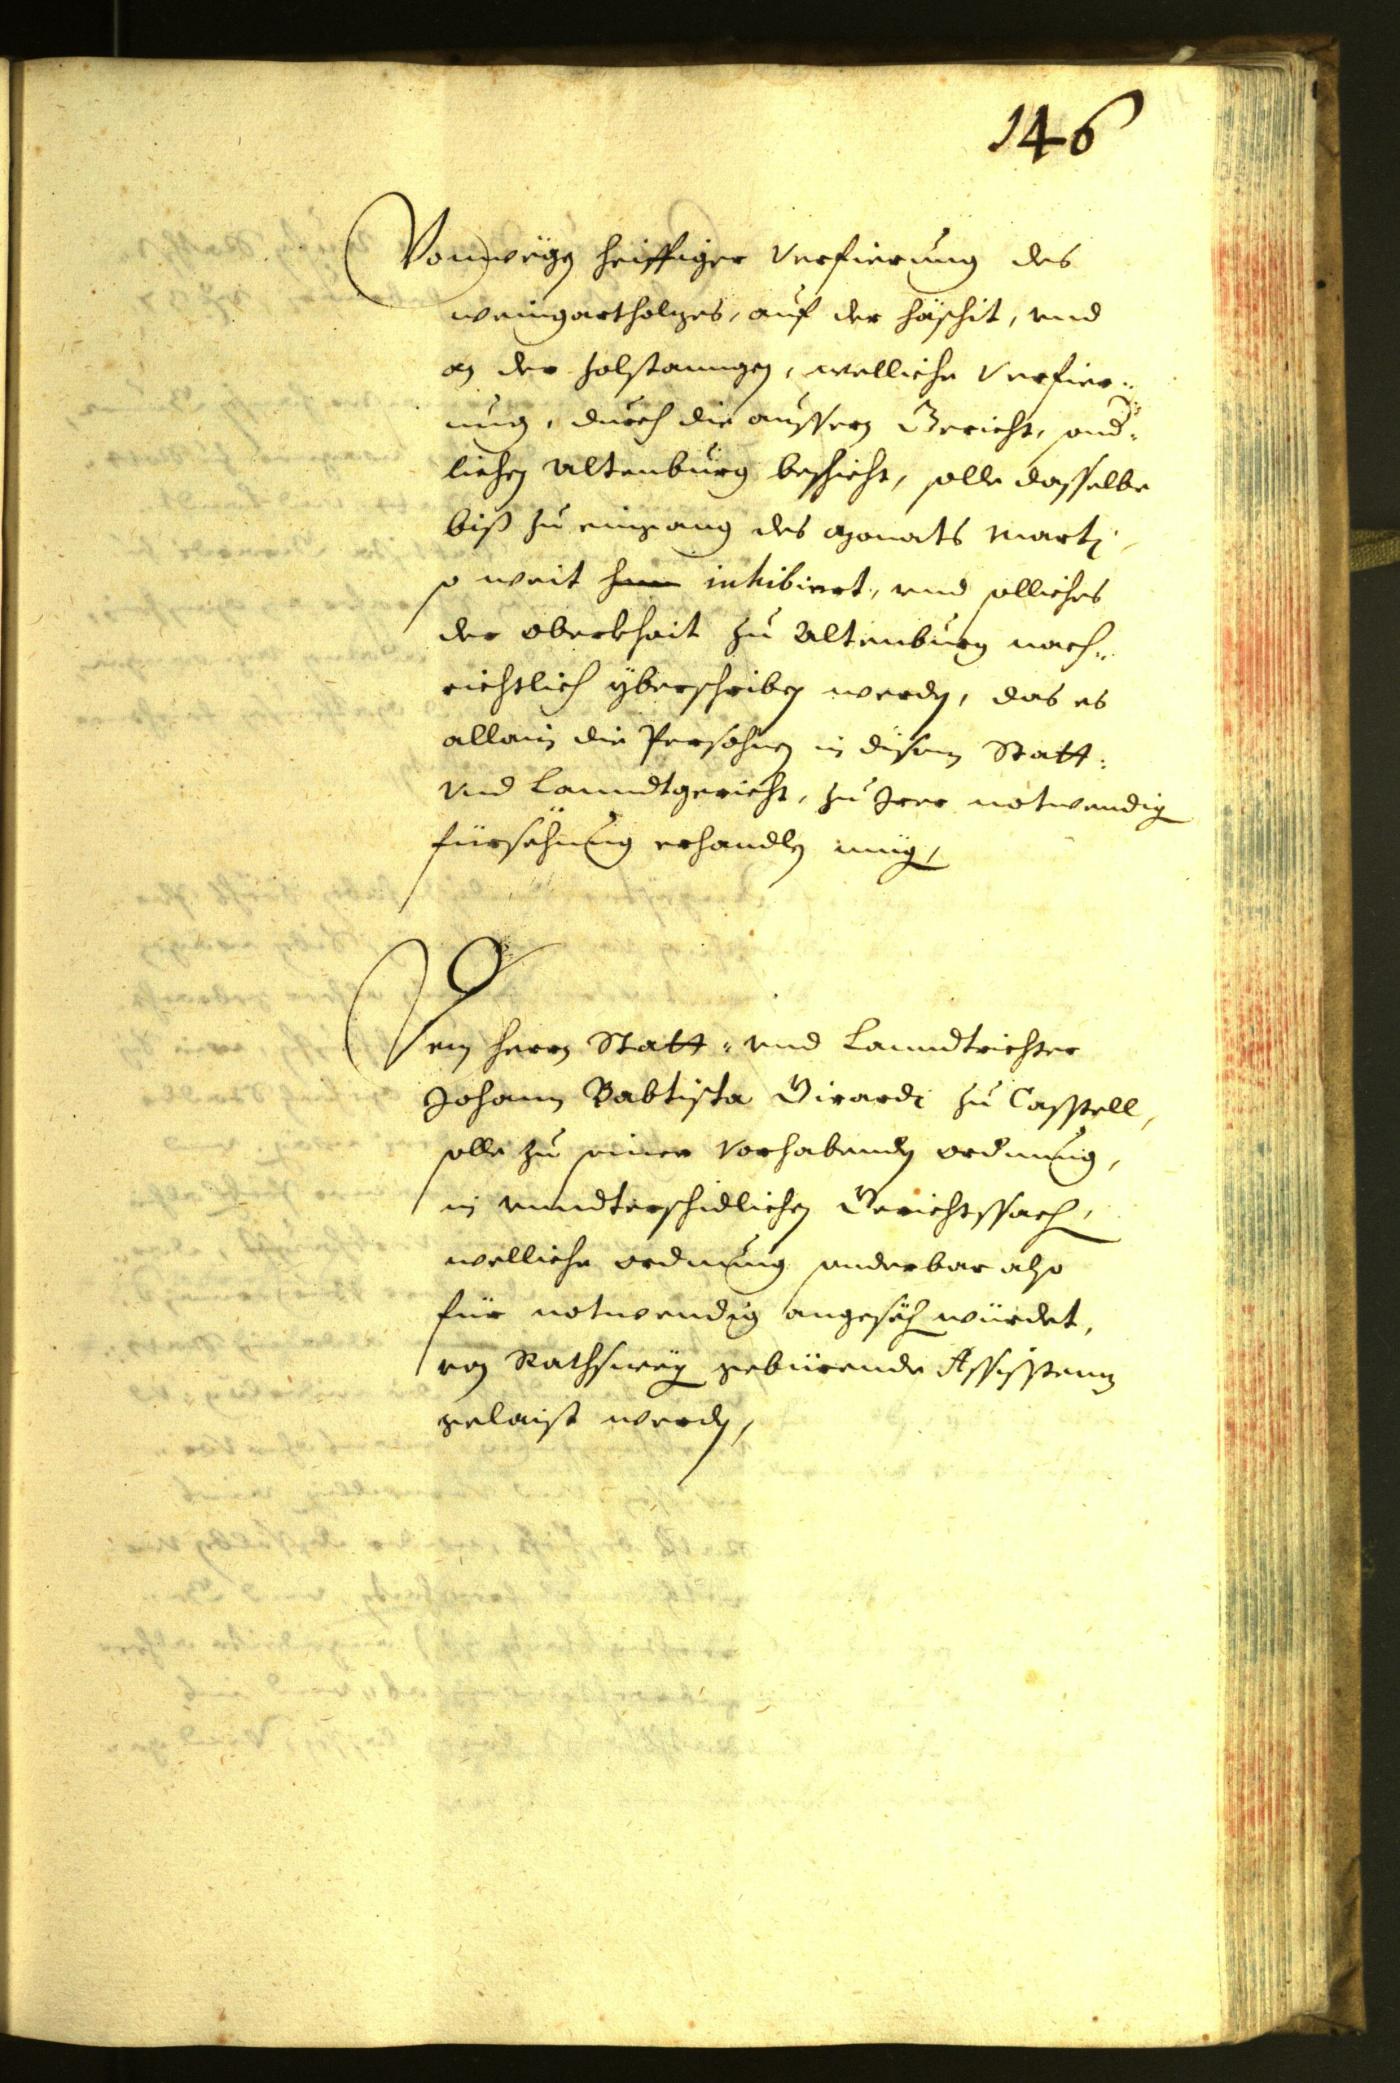 146
Vonwegen heiffiger Verfierung des
weingartholzes, auf der häschit, und
an der holstanngen, welliche Verfier„
ung, durch die aussern Gericht, sond„
lichen Altenburg beschicht, solle dasselbe
biß zu eingang des Monats Marty,
so weit inhibiert, und solliches
der Oberkhait zu Altenburg nach„
richtlich yberschriben werden, das es
allain die Persohnen in disem Statt„
und Lanndtgericht, zu Irer notwendigen
fürsehung erhandlen mügen,
Dem herrn Statt„ und Lanndtrichter
Johann Babtista Girardi zu Casstell,
solle zu seiner Vorhabenden ordnung,
in unndterschidlichen Gerichtssachen,
welliche ordnung sonderbar also
für notwendig angesehen würdet,
von Rathswegen gebürende Assistenz
gelaist werden,